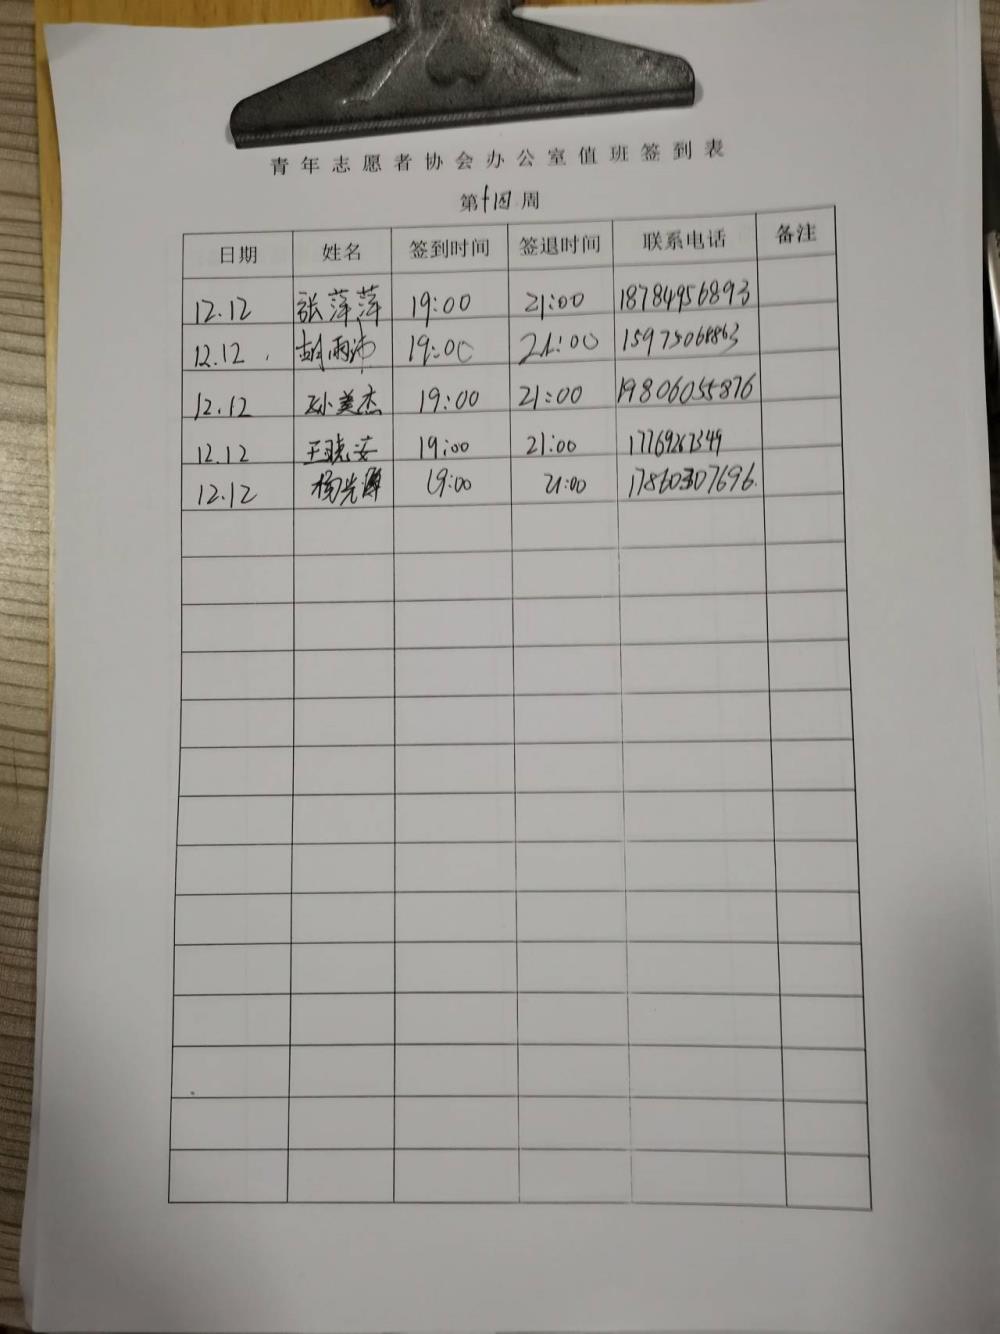 青年志愿者协会办公室值班签到表
第十四周
日期 姓名 签到时间 签退时间 联系电话 备注
12.12 张萍萍 19:00 21:00 18784956893
12.12 胡雨沛 19:00 21:00
12.12 孙美杰 19:00 21:00 19806055876
12.12 王晓安 19:00 21:00
12.12 杨光 19:00 21:00 17860307696.